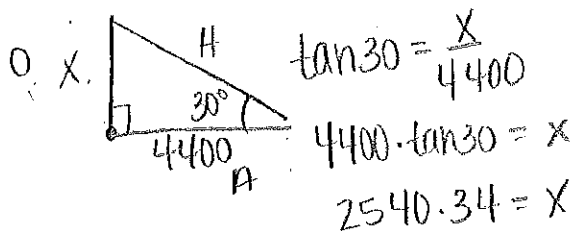 H
O X.
30°
4400
A
tan30 = X/4400
4400·tan30 = X
2540.34 = X